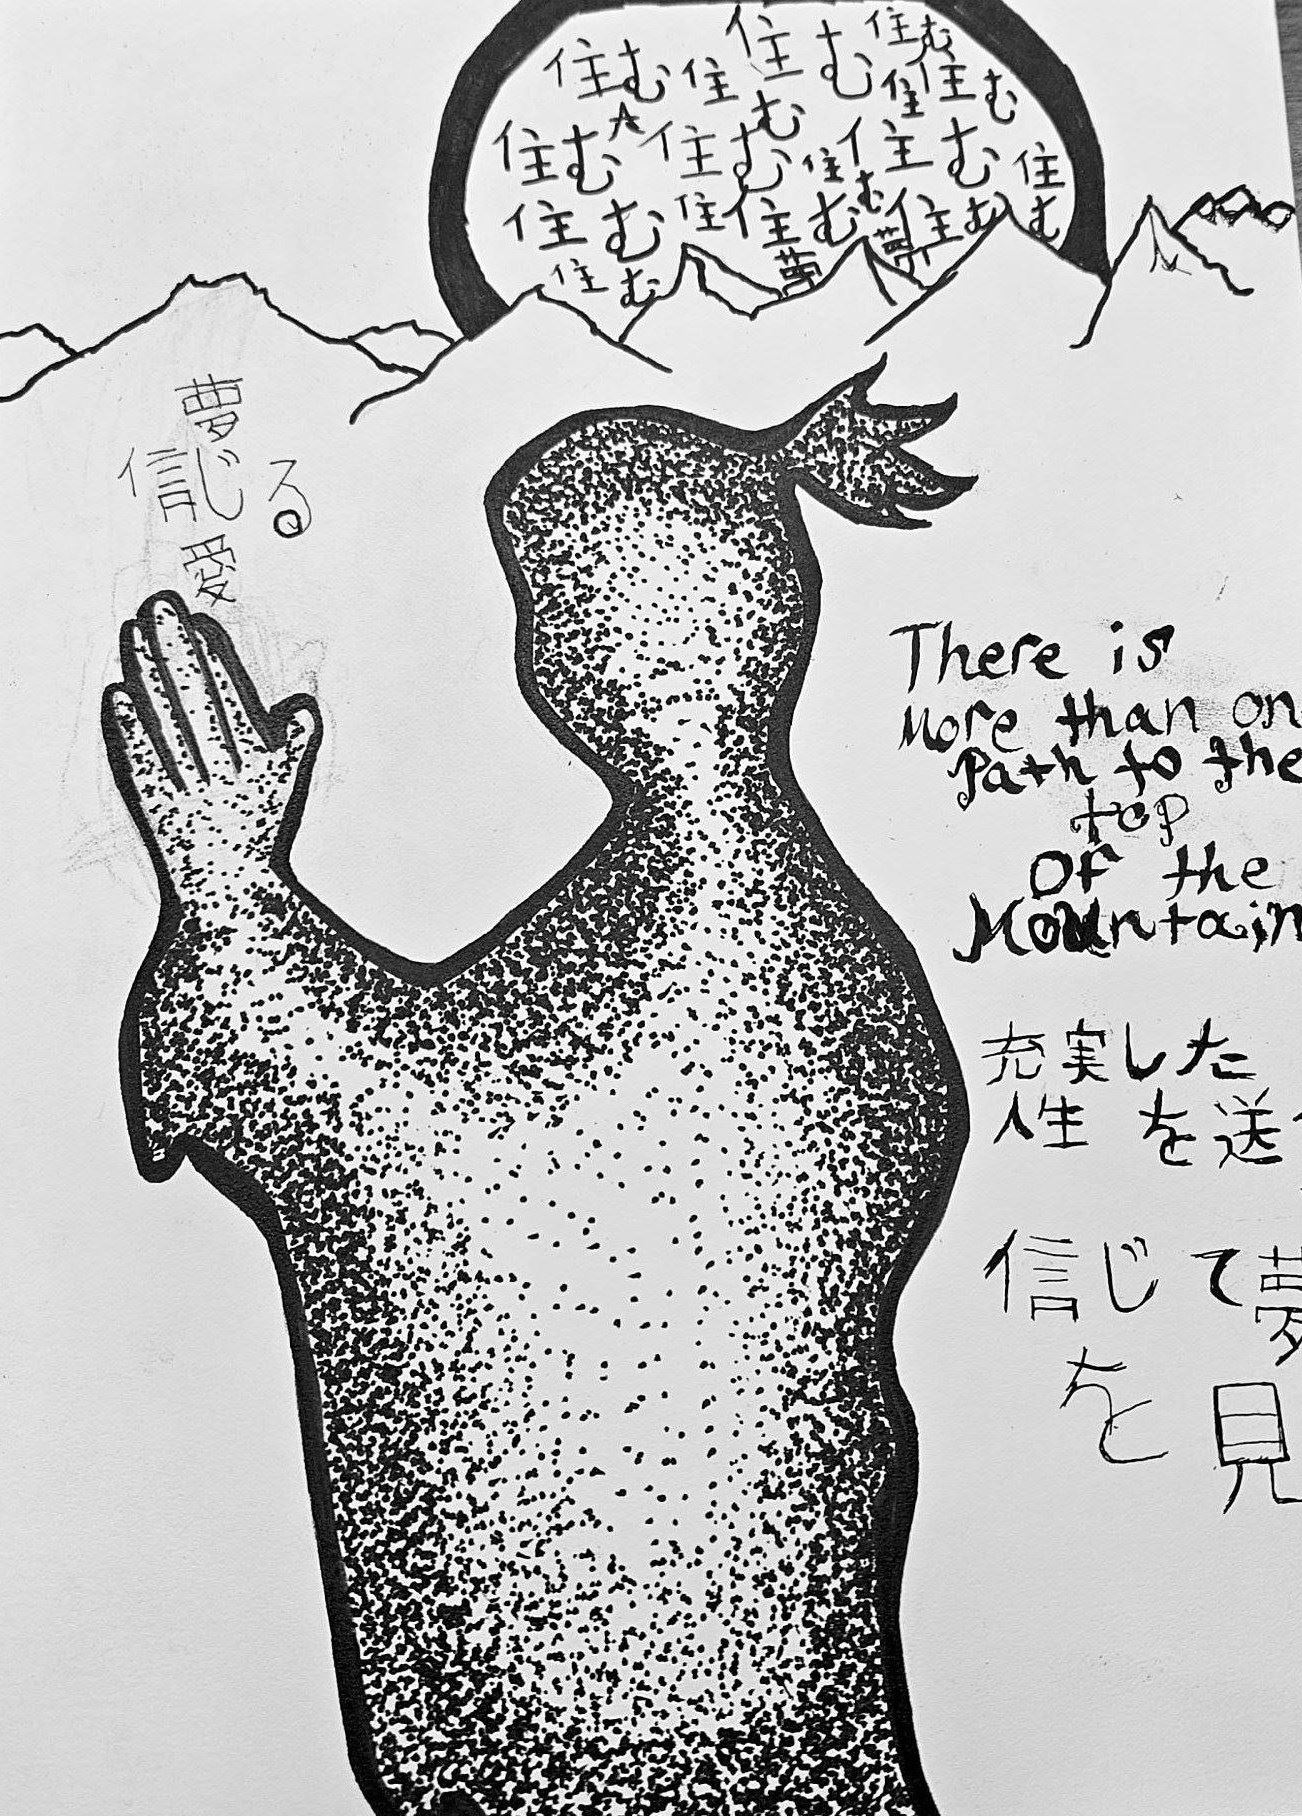 住む 住 住む 住む
住 住む
住む 住む 住む 住む 住む
住む 住 住む 住む
住む 夢 夢
夢
信じる
愛
There is
More than on
Path to the
top
Of the
Mountain
充実した
人生を送
信じて夢
を見